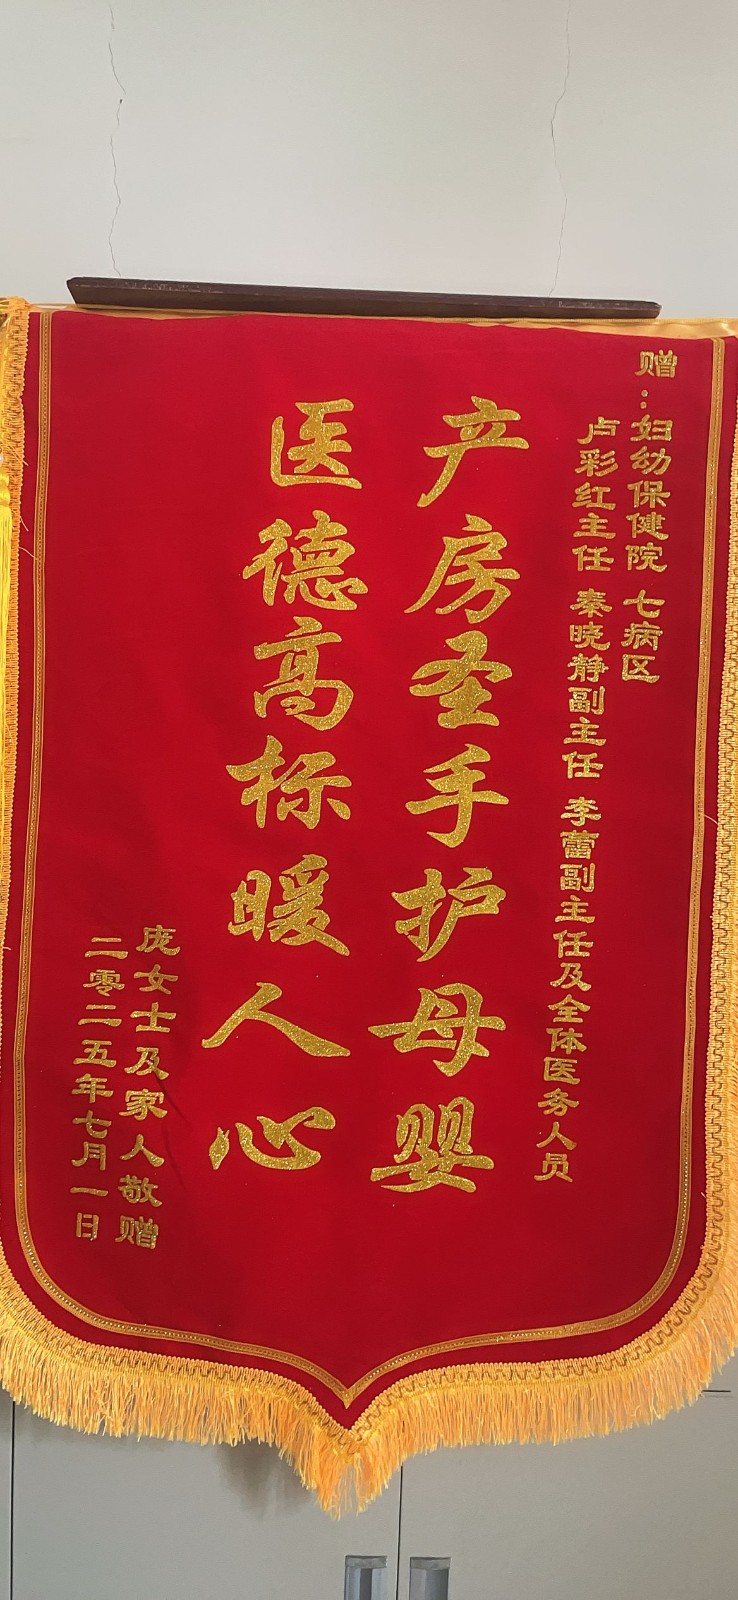 赠：妇幼保健院 七病区
卢彩红主任 秦晓静副主任 李蕾副主任及全体医务人员
产房圣手护母婴
医德高标暖人心
庞女士及家人敬赠
二零二五年七月一日